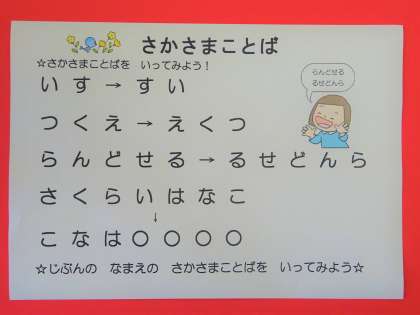 さかさまことば
☆さかさまことばを いってみよう！
らんどせる
るせどんら
いす→すい
つくえ→えくつ
らんどせる→るせどんら
さくらいはなこ
↓
こなは〇〇〇〇
☆じぶんの なまえの さかさまことばを いってみよう☆